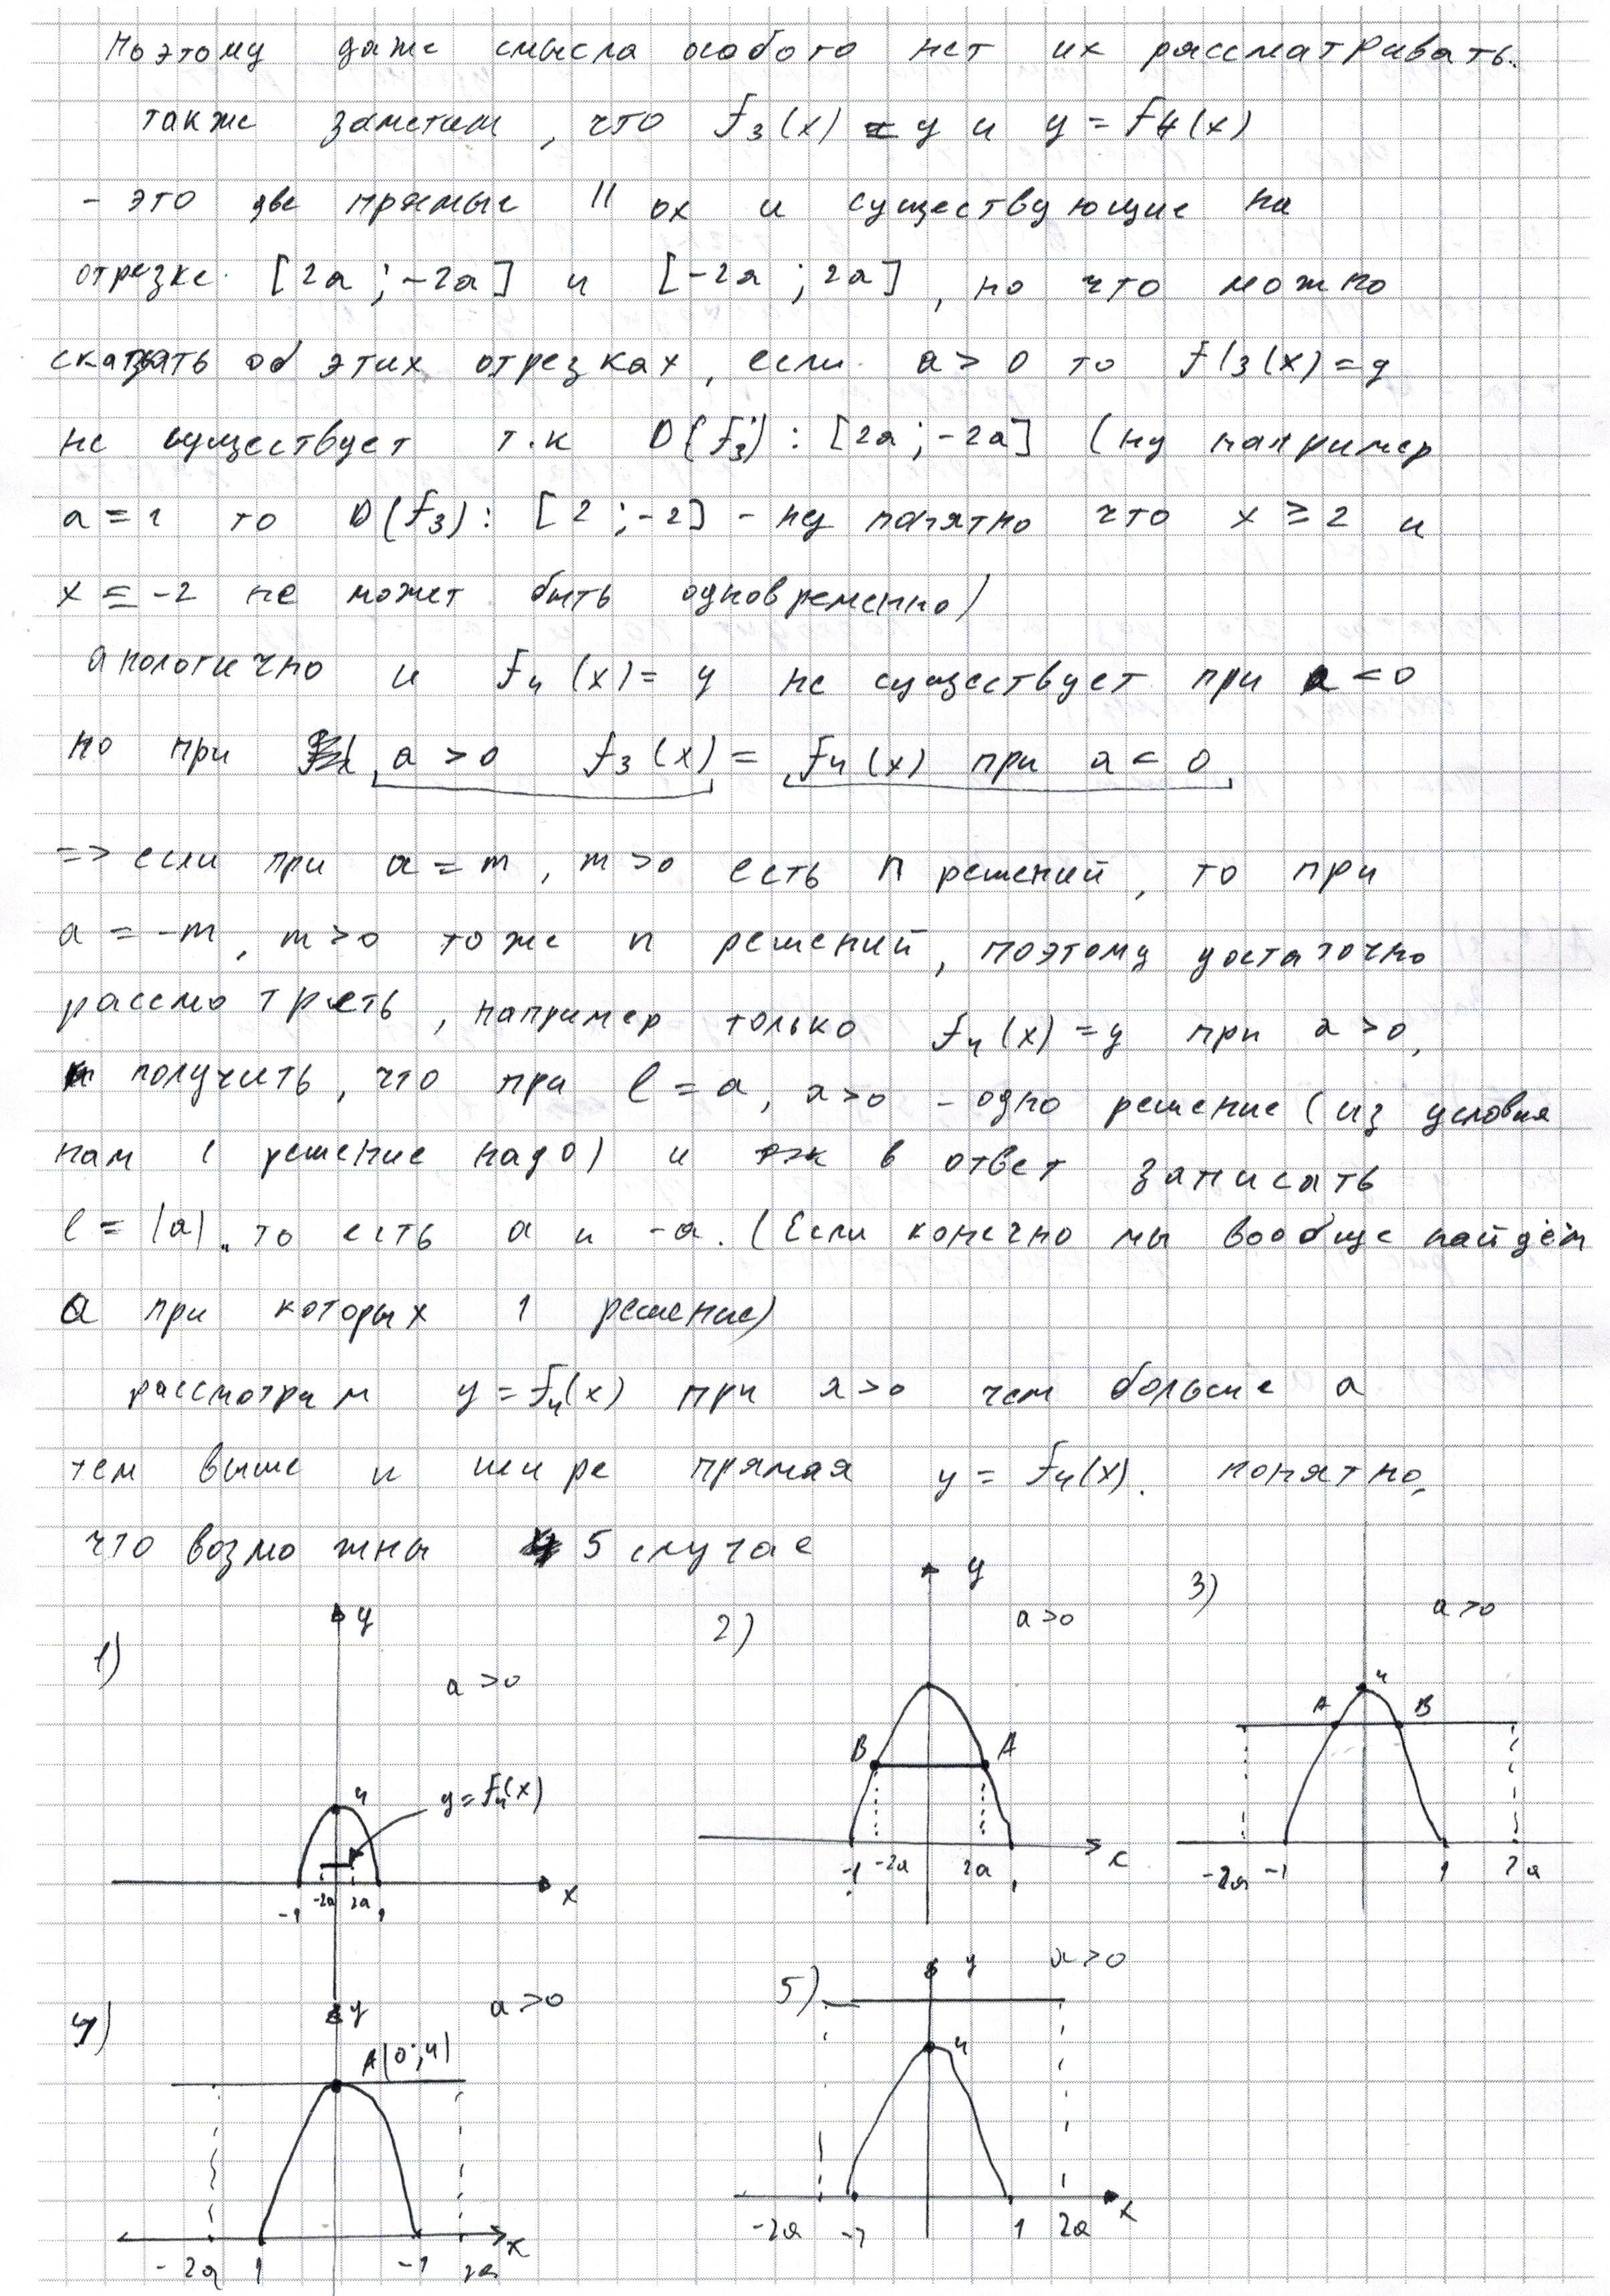 Поэтому даже смысла особого нет их рассматривать.
также заметим, что f₃(x) = y и y = f₄(x)
- это две прямые || ox и существующие на
отрезке [2a ; -2a] и [-2a ; 2a], но что можно
сказать об этих отрезках, если a > 0 то f/3(x) = y
не существует т.к D(f₃) : [2a ; -2a] (ну например
a = 1 то D(f₃) : [2 ; -2] - ну понятно что x ≥ 2 и
x ≤ -2 не может быть одновременно)
анологично и f₄(x) = y не существует при a < 0
но при a > 0 f₃(x) = f₄(x) при a < 0
=> если при a = m, m > 0 есть n решений, то при
a = -m, m > 0 тоже n решений, поэтому достаточно
рассмотреть, например только f₄(x) = y при a > 0,
получить, что при l = a, a > 0 - одно решение (из условия
нам 1 решение надо) и в ответ записать
l = |a|. то есть a и -a. (Если конечно мы вообще найдём
a при которых 1 решение)
рассмотрим y = f₄(x) при a > 0 чем больше a
тем выше и шире прямая y = f₄(x). понятно,
что возможны 5 случае
1) y a > 0 4 y = f₄(x) -1 -2a 2a 1 x
2) y a > 0 B A -1 -2a 2a 1 x
3) a > 0 4 A B -2a -1 1 2a
4) y a > 0 A(0;4) -2a 1 -1 2a x
5) y a > 0 4 -2a -1 1 2a x